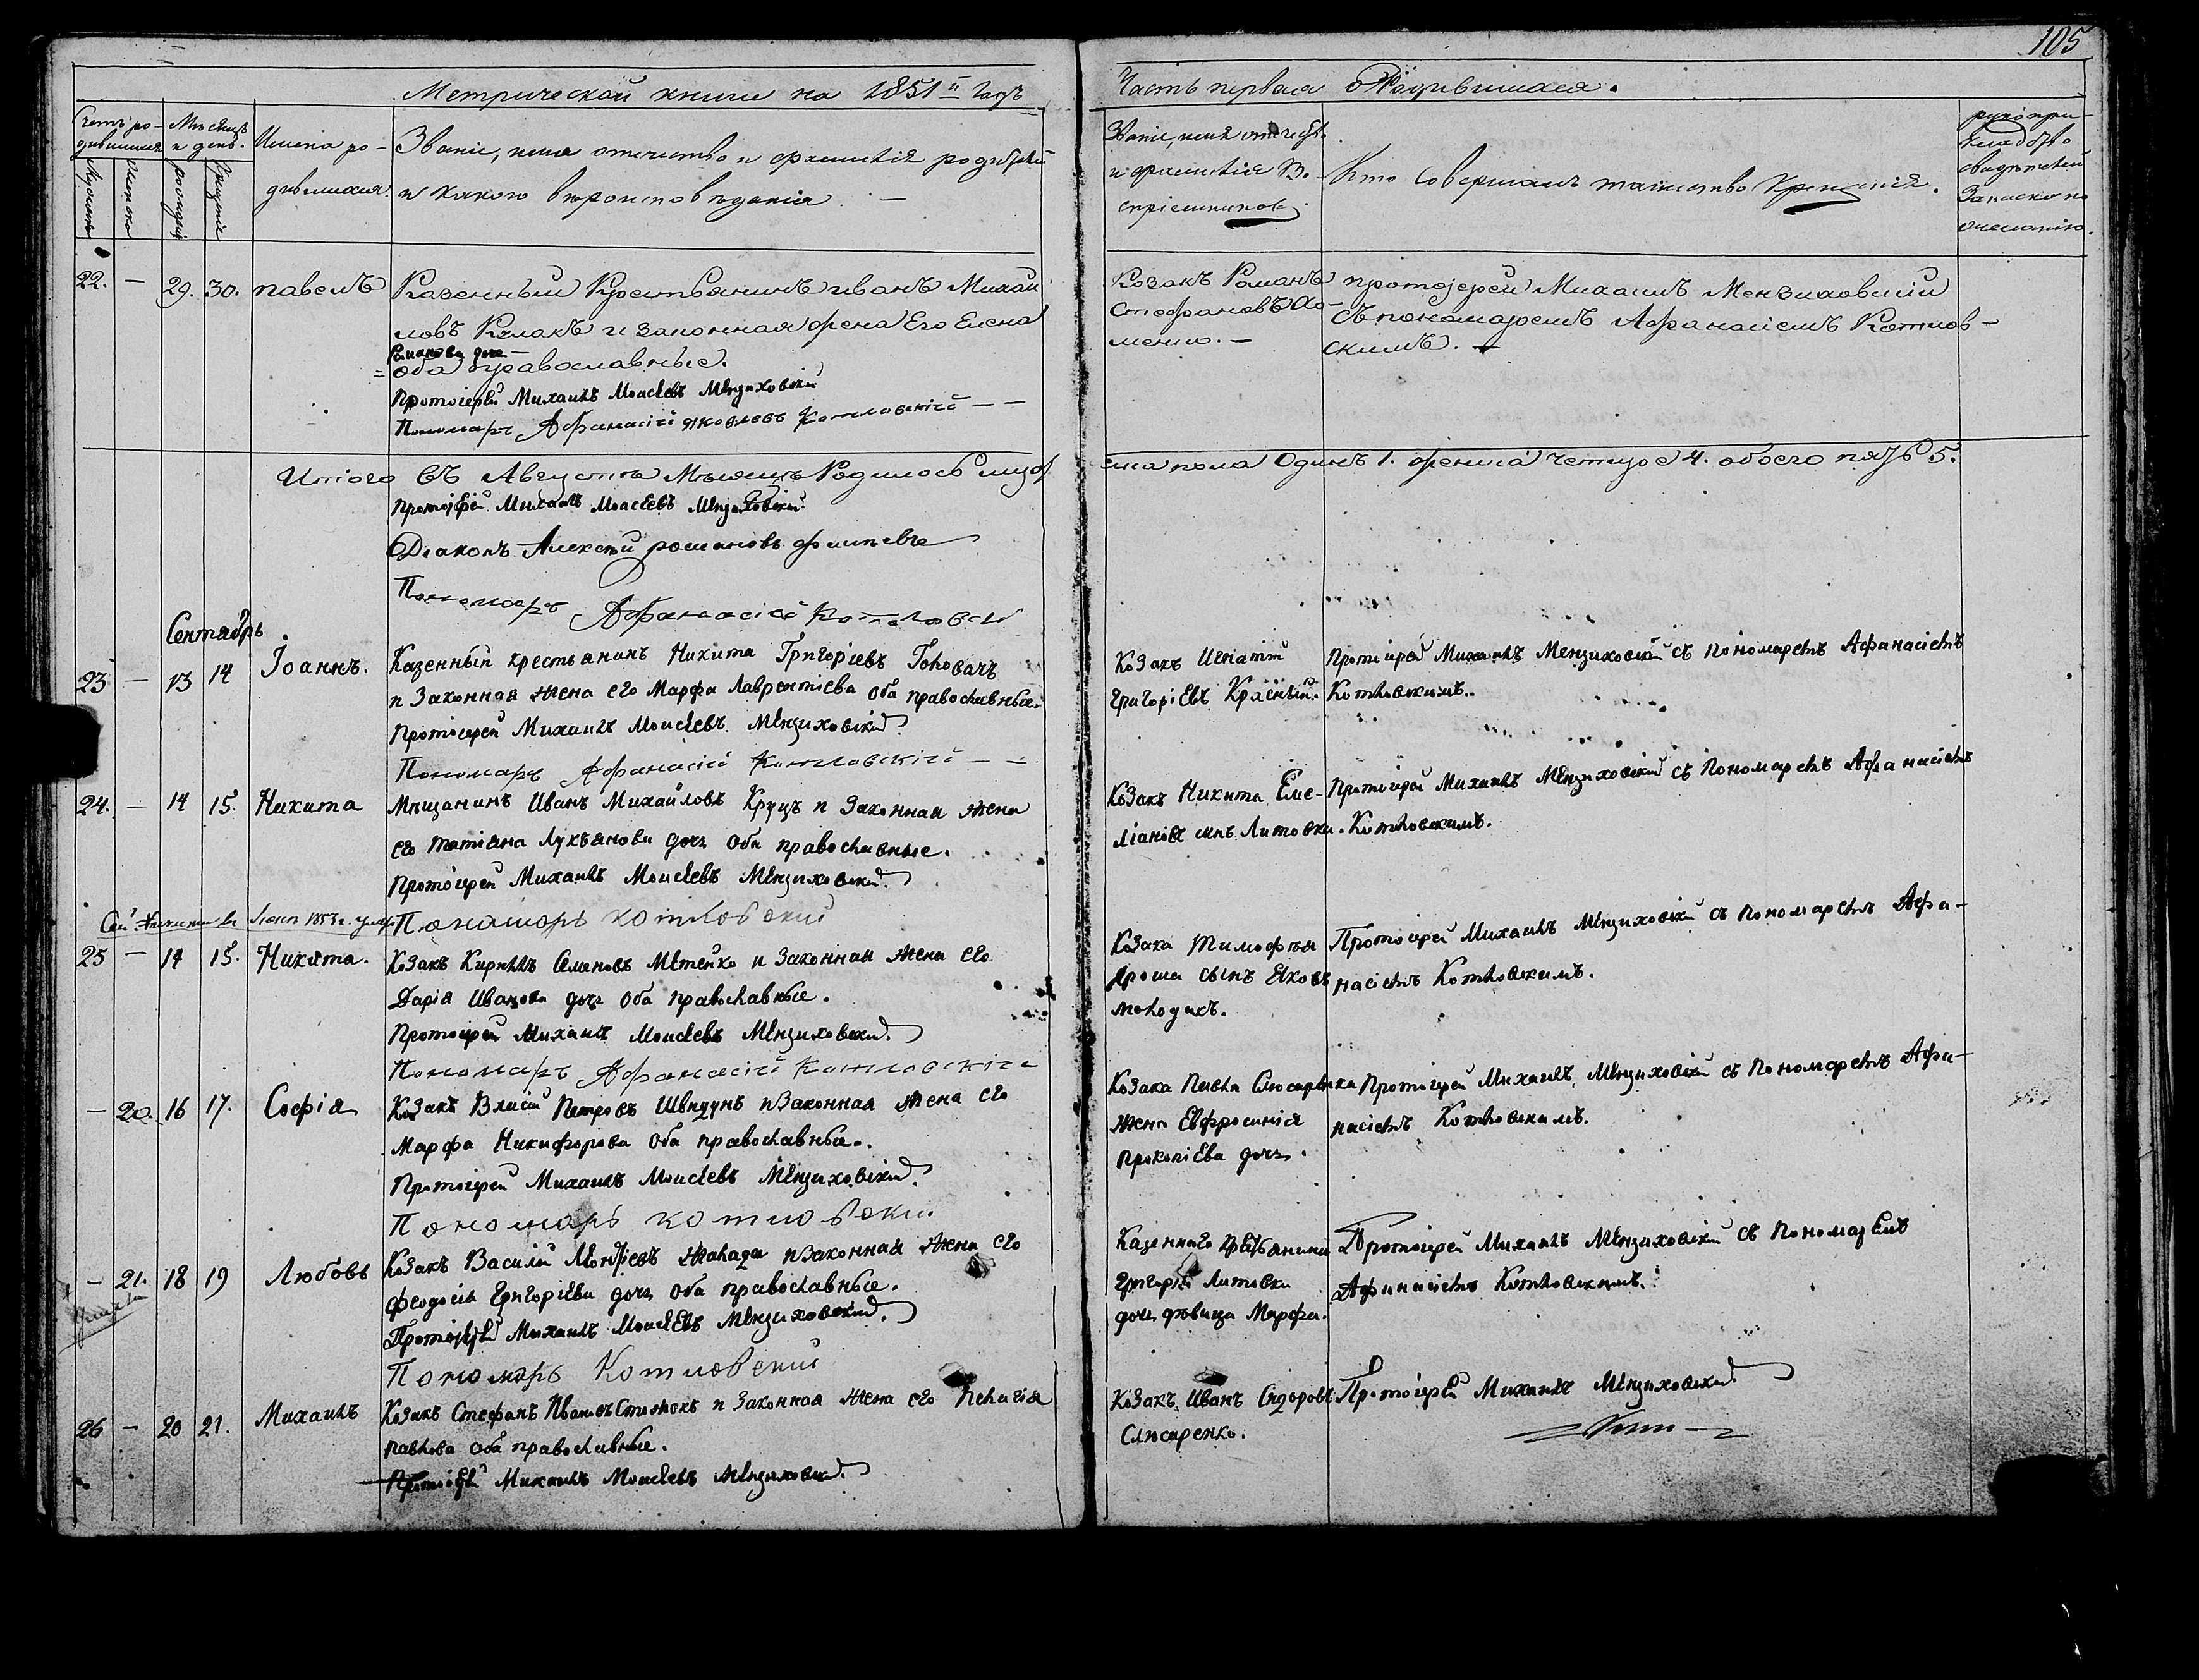 105
Метрической книги на 1851й годъ
Часть первая о Родившихся.
Счетъ ро-
дившихся
Мѣсяцъ
и день.
Имена ро-
дившихся.
Званіе, имя отечество и фамилія родителей
и какого вѣроисповѣданія. —
Званіе, имя отечест.
и фамилія во-
спріемниковъ.
Кто совершалъ таинство Крещенія.
рукопри-
кладство
свидѣтелей
записки по
желанію.
22. — 29. 30. павелъ
Казенный Крестьянинъ иванъ Михай
ловъ и законная жена Его Елена
Романова доч—
= оба православные.
Протоіерей Михаилъ Моисеевъ Мензиховскій
Пономарь Афанасій Яковлевъ Котловскій — —
Козакъ Романъ
Стефановъ Хо-
менко. —
протоіерей Михаилъ Мензиховскій
съ пономаремъ Афанасіемъ Котлов-
скимъ. —
Итого въ Августѣ Мѣсяцѣ Родилось муж
ска пола Одинъ 1. женска четыре 4. обоего пять 5.
Протоіерей Михаилъ Моисеевъ Мензиховскій
Діаконъ Алексѣй романовъ
Пономарь Афанасій Котловскій
Сентябрь
23 — 13 14 Іоаннъ.
Казенный крестьянинъ Никита Григоріевъ Головачъ
и Законная жена его Марфа Лаврентіева оба православные.
Протоіерей Михаилъ Моисеевъ Мензиховскій
Пономарь Афанасій Котловскій — —
Козакъ Игнатій
Григоріевъ Красный.
Протоіерей Михаилъ Мензиховскій съ Пономаремъ Афанасіемъ
Котловскимъ.
24. — 14 15. Никита
Мѣщанинъ Иванъ Михайловъ Круцъ и Законная жена
его Татіяна Лукъянова дочь Оба православные.
Протоіерей Михаилъ Моисеевъ Мензиховскій
Пономарь Котловскій
Козакъ Никита Еме-
ліановъ сынъ Литовка.
Протоіерей Михаилъ Мензиховскій съ Пономаремъ Афанасіемъ
Котловскимъ.
Сей Никита въ 1853 г. умеръ
25 — 14 15. Никита.
Козакъ Кирилъ Семеновъ Метейко и Законная жена его
Дарія Иванова дочь Оба православные.
Протоіерей Михаилъ Моисеевъ Мензиховскій
Пономарь Афанасій Котловскій
Козака Тимофѣя
Яроша сынъ Яковъ
молодикъ.
Протоіерей Михаилъ Мензиховскій съ Пономаремъ Афа-
насіемъ Котловскимъ.
— 20. 16 17. Софія
Козакъ Власій Петровъ Швидунъ и Законная жена его
Марфа Никифорова Оба православные.
Протоіерей Михаилъ Моисеевъ Мензиховскій
Пономарь Котловскій
Козака Павла Слюсаренка
жена Евфросинія
Прокопіева дочь.
Протоіерей Михаилъ Мензиховскій съ Пономаремъ Афа-
насіемъ Котловскимъ.
— 21. 18 19 Любовь
Козакъ Василій Леонтіевъ и Законная жена его
Феодосія Григоріева дочь Оба православные.
Протоіерей Михаилъ Моисеевъ Мензиховскій
Пономарь Котловскій
Казеннаго крестьянина
Григорія Литовки
дочь дѣвица Марфа.
Протоіерей Михаилъ Мензиховскій съ Пономаремъ
Афанасіемъ Котловскимъ.
26 — 20 21. Михаилъ
Козакъ Стефанъ Ивановъ и Законная жена его Пелагія
Павлова Оба православные.
Протоіерей Михаилъ Моисеевъ Мензиховскій
Козакъ Иванъ Сидоровъ
Слюсаренко.
Протоіерей Михаилъ Мензиховскій